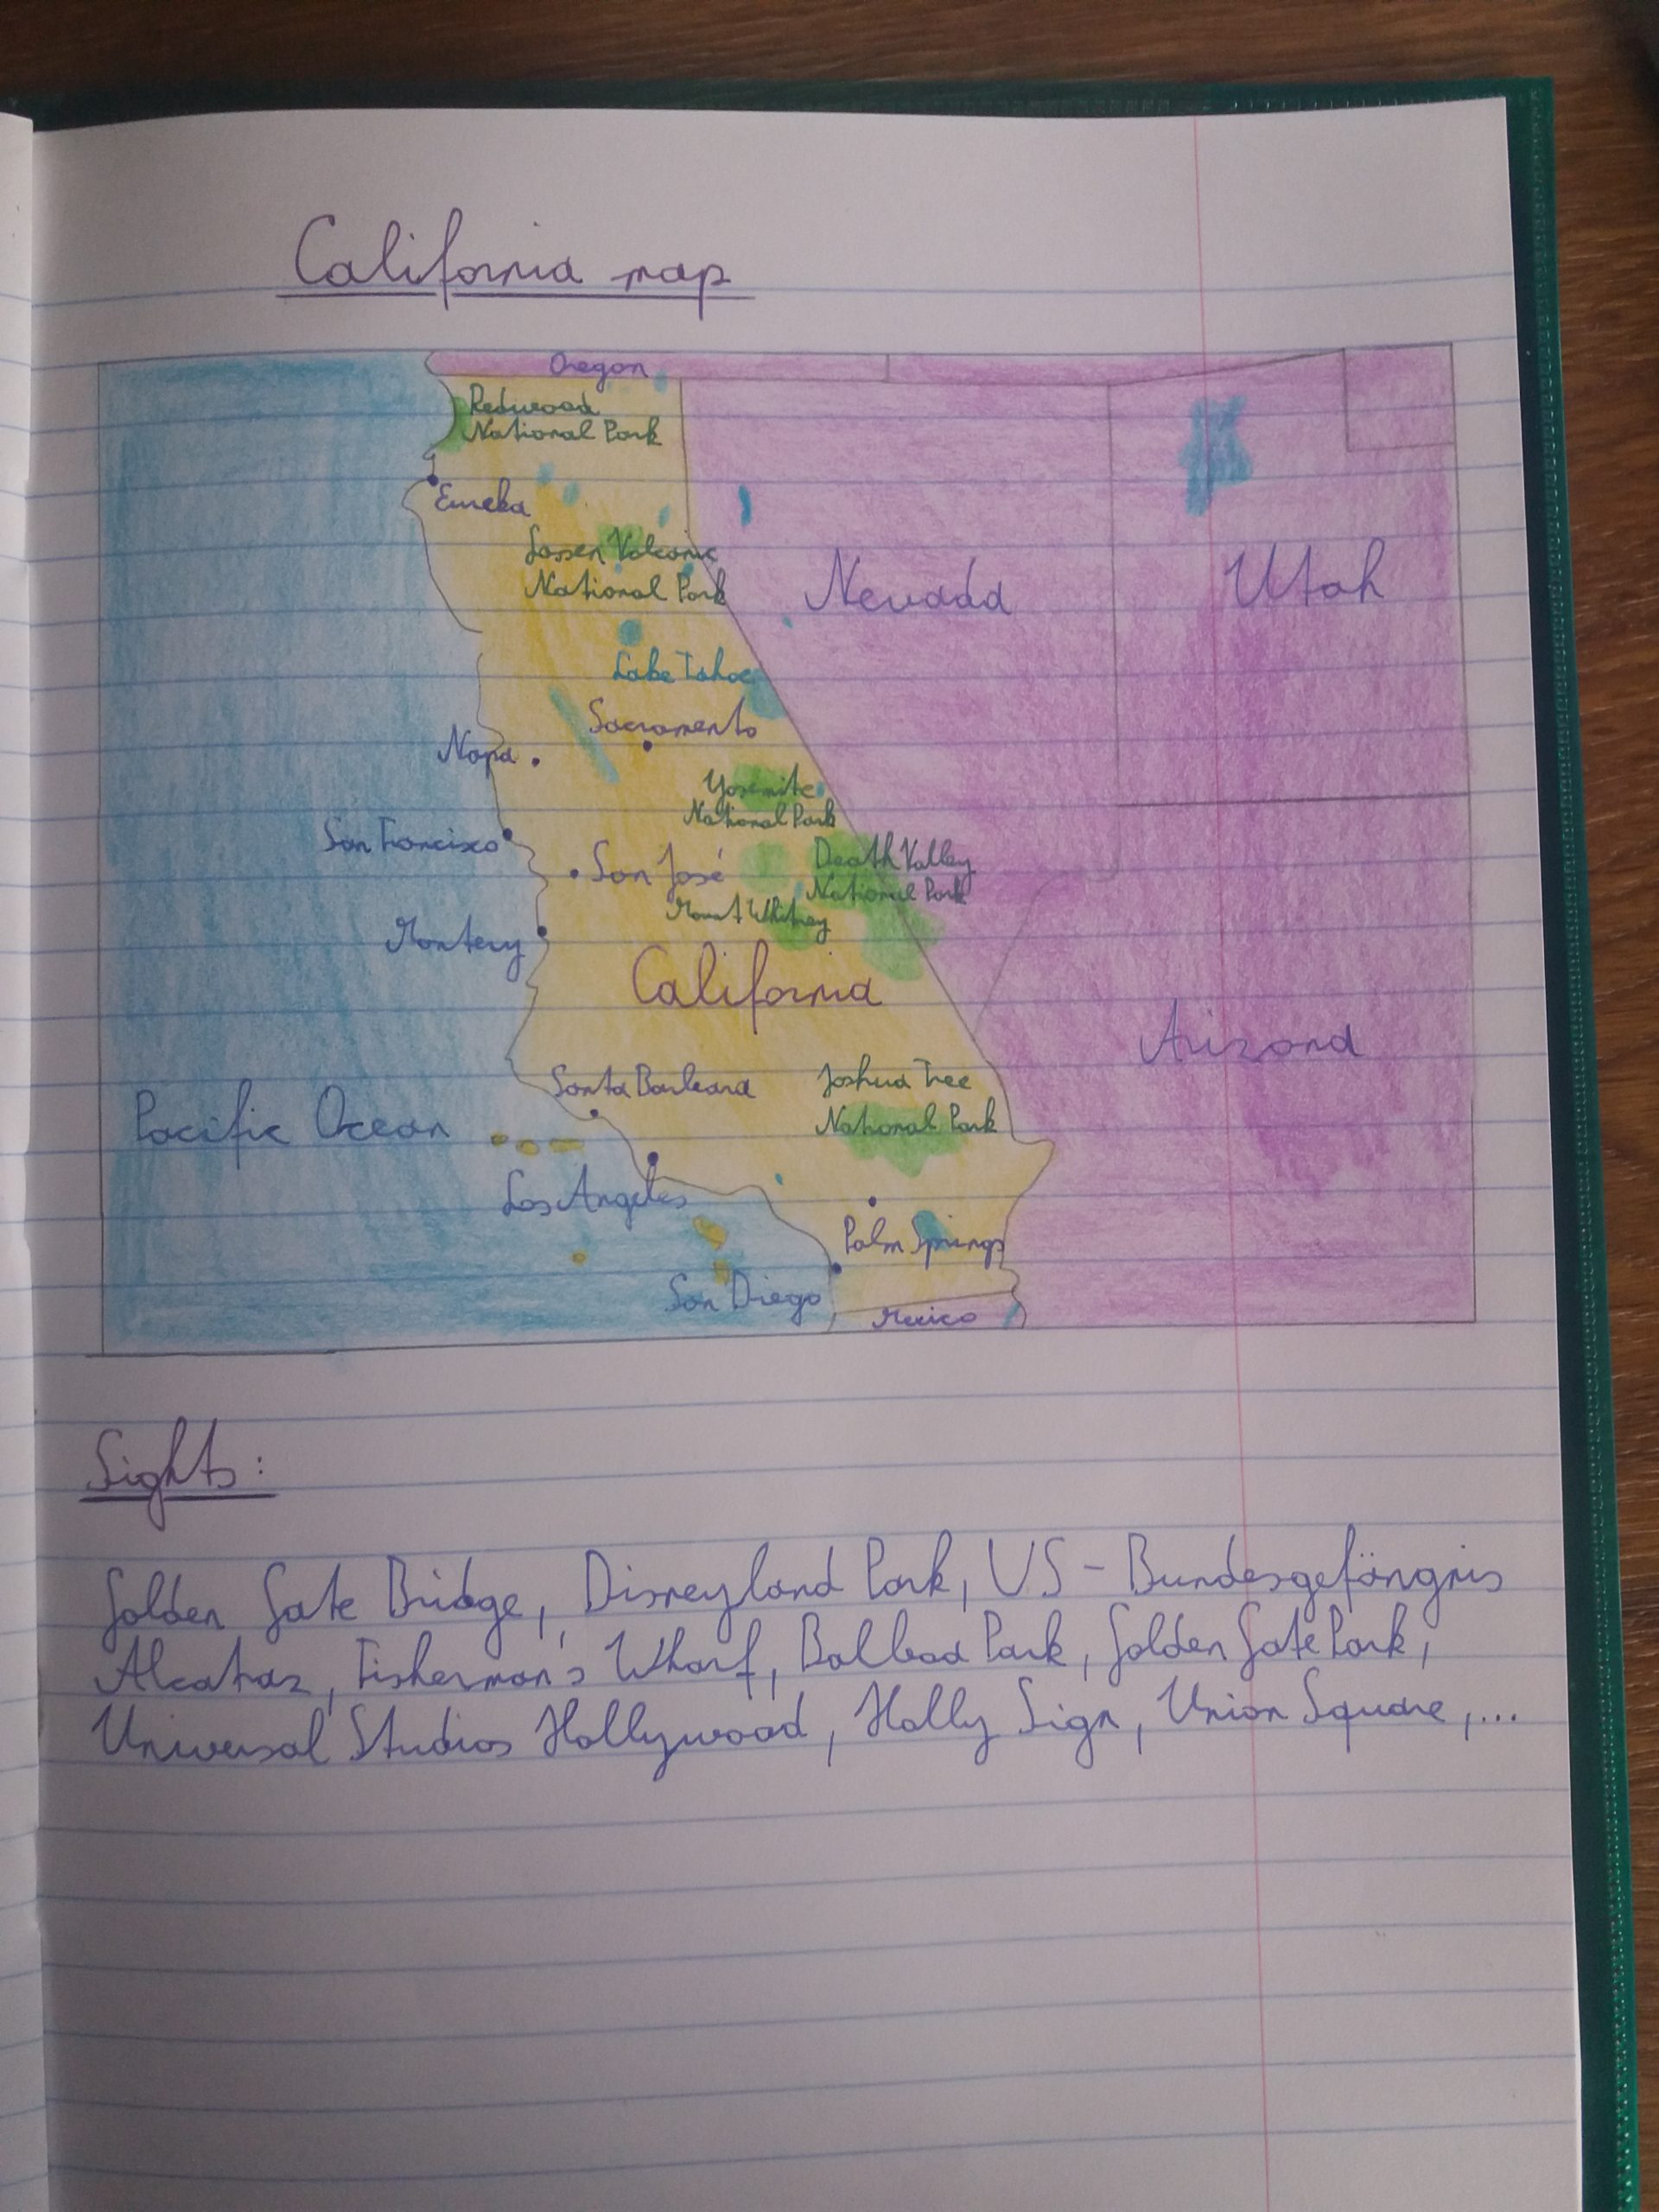 California map
Oregon
Redwood
National Park
Eureka
Lassen Volcanic
National Park
Nevada
Utah
Lake Tahoe
Sacramento
Napa
Yosemite
National Park
San Francisco
San José
Death Valley
National Park
Mount Whitney
Montery
California
Arizona
Santa Barbara
Joshua Tree
National Park
Pacific Ocean
Los Angeles
Palm Springs
San Diego
Mexico
Sights:
Golden Gate Bridge, Disneyland Park, US-Bundesgefängnis
Alcatraz, Fisherman's Wharf, Balboa Park, Golden Gate Park,
Universal Studios Hollywood, Holly Sign, Union Square, ...